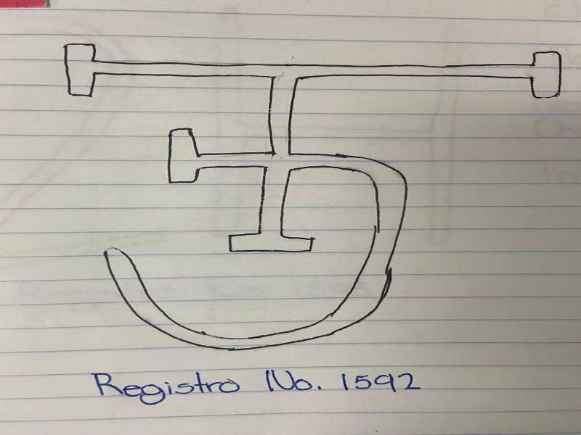 Registro No. 1592